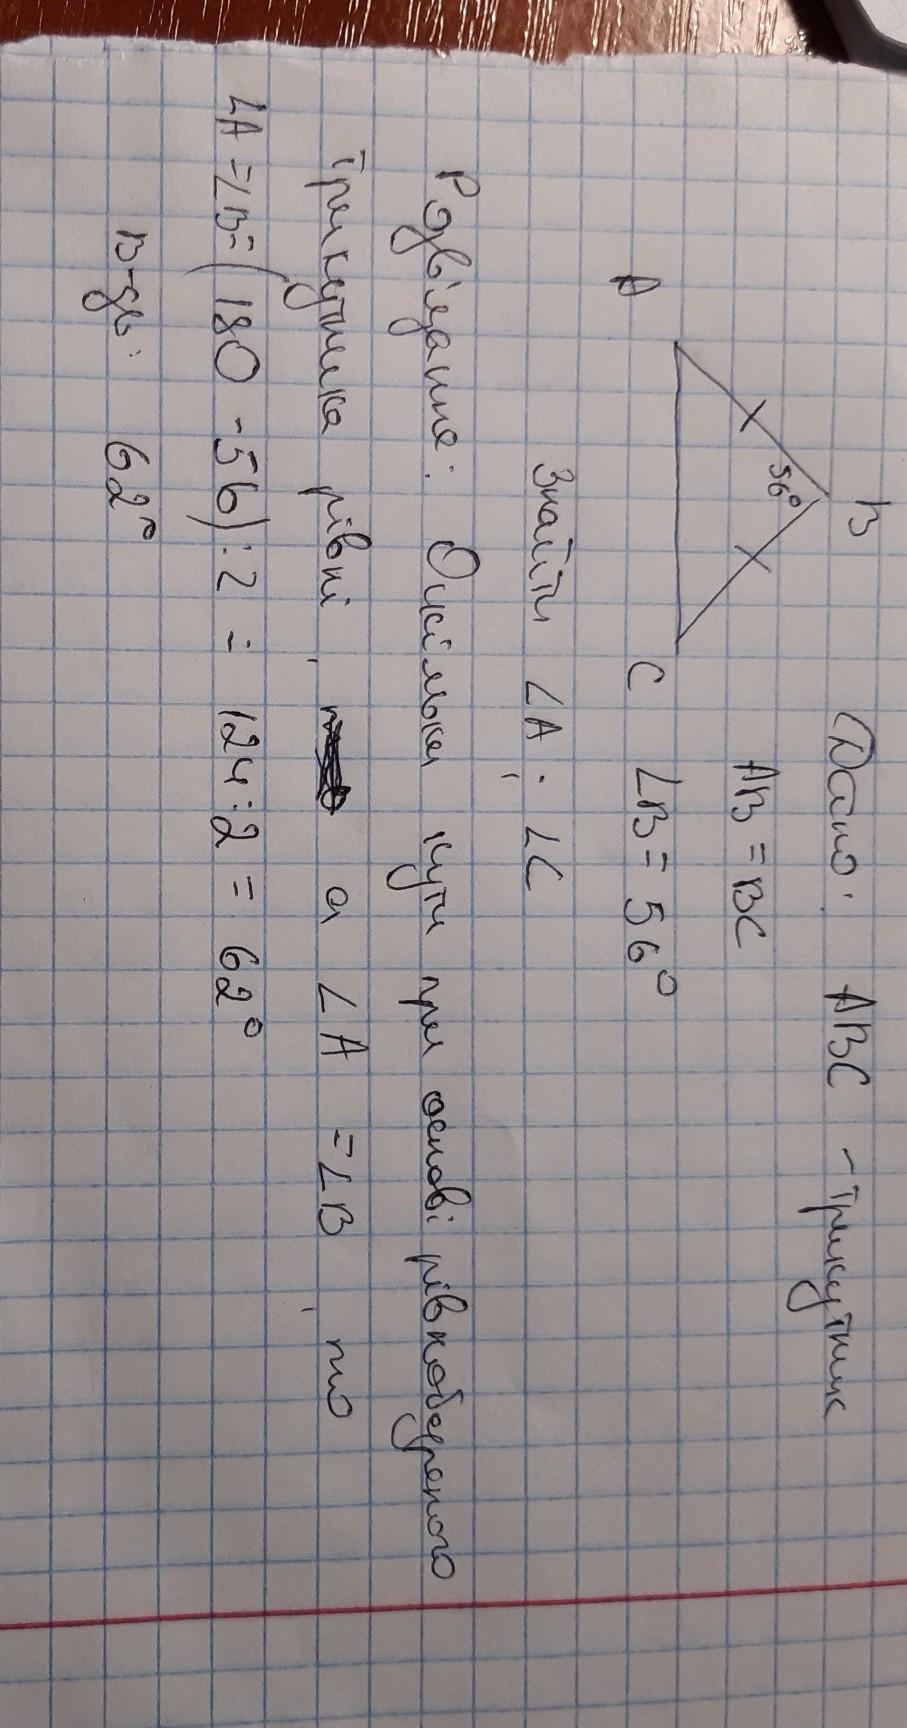 B
Дано: ABC - трикутник
56°
AB = BC
A
C
∠B = 56°
Знайти ∠A; ∠C
Розв'язание: Оскільки кути при основі рівнобедреного
трикутника рівні, а ∠A = ∠B, то
∠A = ∠B = (180 - 56) : 2 = 124 : 2 = 62°
В-дь: 62°